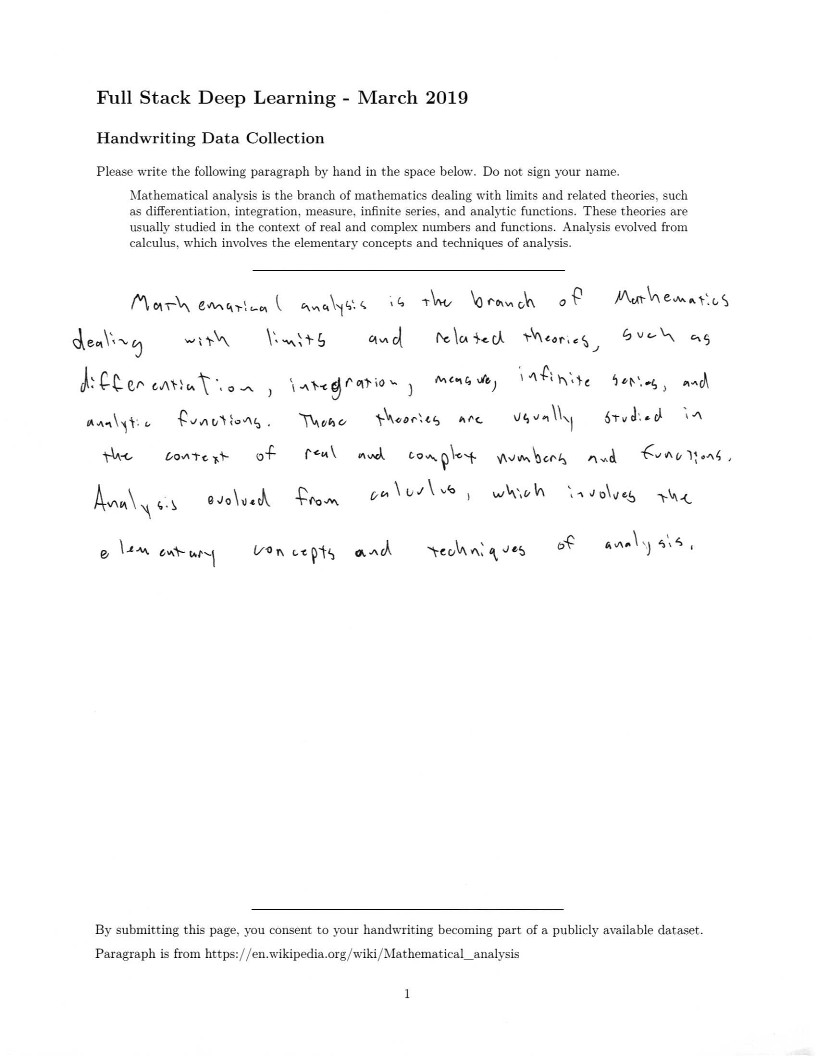 Full Stack Deep Learning - March 2019
Handwriting Data Collection
Please write the following paragraph by hand in the space below. Do not sign your name.
Mathematical analysis is the branch of mathematics dealing with limits and related theories, such
as differentiation, integration, measure, infinite series, and analytic functions. These theories are
usually studied in the context of real and complex numbers and functions. Analysis evolved from
calculus, which involves the elementary concepts and techniques of analysis.
Mathematical analysis is the branch of Mathematics
dealing with limits and related theories, such as
differentiation, integration, measure, infinite series, and
analytic functions. These theories are usually studied in
the context of real and complex numbers and functions.
Analysis evolved from calculus, which involves the
elementary concepts and techniques of analysis.
By submitting this page, you consent to your handwriting becoming part of a publicly available dataset.
Paragraph is from https://en.wikipedia.org/wiki/Mathematical_analysis
1